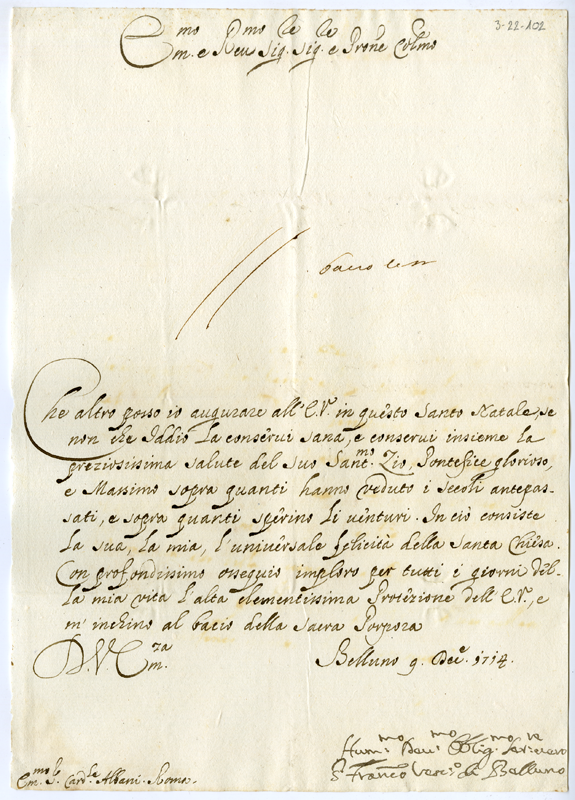 3-22-102
Em.mo e Reu.mo Sig.re Sig.re e Prone Col.mo
Che altro posso io augurare all' E.V. in questo Santo Natale, se
non che Iddio la conserui sana, e conserui insieme la
preziosissima salute del suo Sant.mo Zio, Pontefice glorioso,
e Massimo sopra quanti hanno veduto i secoli antepas-
sati, e sopra quanti sperino li venturi. In ciò consiste
la sua, la mia, l' universale felicità della Santa Chiesa.
Con profondissimo ossequio imploro per tutti i giorni del-
la mia vita l' alta clementissima Protezione dell' E.V., e
m' inchino al bacio della sacra Porpora
D. V. Em.za
Belluno 9. Dec.e 1714.
Hum.mo Deu.mo Oblig.mo Seru.re
Franco Vesc.o di Belluno
Em.mo S. Card.le Albani. Roma.